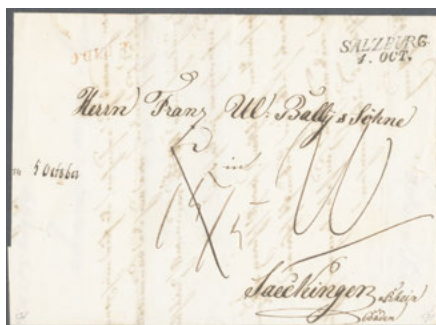 SALZBURG
1. OCT.
Herrn Franz Ul: Bally & Söhne
in
5 October
Saeckingen a Rhein
Baden